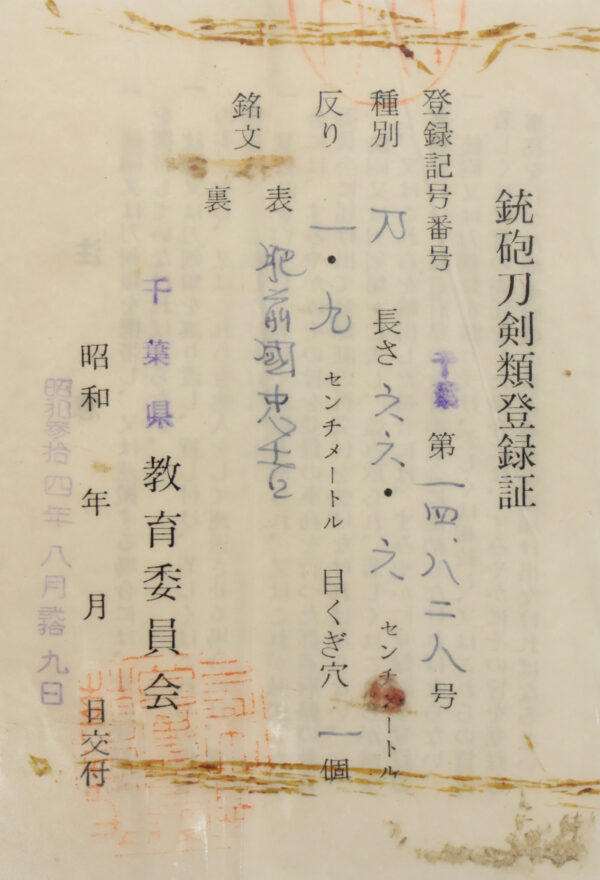 銃砲刀剣類登録証
登録記号番号 千葉 第一四、八二八号
種別 刀 長さ 六六・六 センチメートル
反り 一・九 センチメートル 目くぎ穴 一個
銘文 表 肥前國忠吉
裏
千葉県教育委員会
昭和 年 月 日交付
昭和参拾四年八月 九日